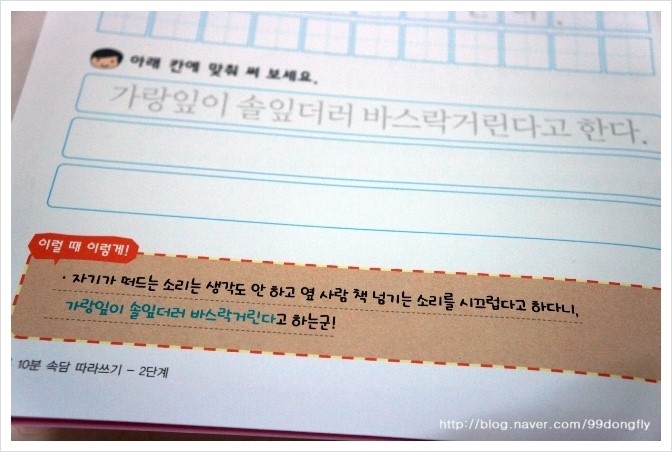 아래 칸에 맞춰 써 보세요.
가랑잎이 솔잎더러 바스락거린다고 한다.
이럴 때 이렇게!
· 자기가 떠드는 소리는 생각도 안 하고 옆 사람 책 넘기는 소리를 시끄럽다고 하다니,
가랑잎이 솔잎더러 바스락거린다고 하는군!
10분 속담 따라쓰기 - 2단계
http://blog.naver.com/99dongfly